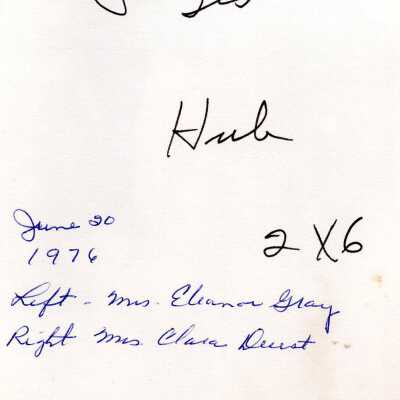 Hub
June 20
1976
2 X 6
Left - Mrs. Eleanor Gray
Right Mrs. Clara Durst